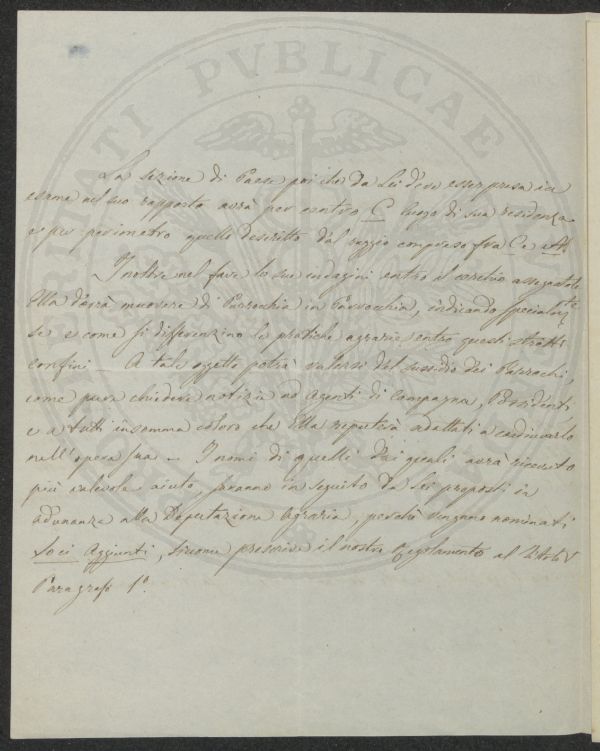 La sezione di Paese poi che da Lei deve esser presa in
esame nel suo rapporto avrà per centro C luogo di sua residenza
e per perimetro quello descritto dal raggio compreso fra C e A.
Inoltre nel fare le sue indagini entro il cerchio assegnatole
Ella dovrà muovere di Parrochia in Parrochia, indicando specialmte
se e come si differenzino le pratiche agrarie entro questi stretti
confini _ A tale oggetto potrà valersi del sussidio dei Parrochi,
come pure chiedere notizie ad Agenti di Campagna, Possidenti,
e a tutti insomma coloro che Ella reputerà adattati a coadiuvarlo
nell'opera sua _ I nomi di quelli dai quali avrà ricevuto
più valevole aiuto, saranno in seguito da Lei proposti in
adunanza alla Deputazione Agraria, perchè vengano nominati
Soci Aggiunti, siccome prescrive il nostro Regolamento al Titolo V
Paragrafo 1º.
PVBLICAE